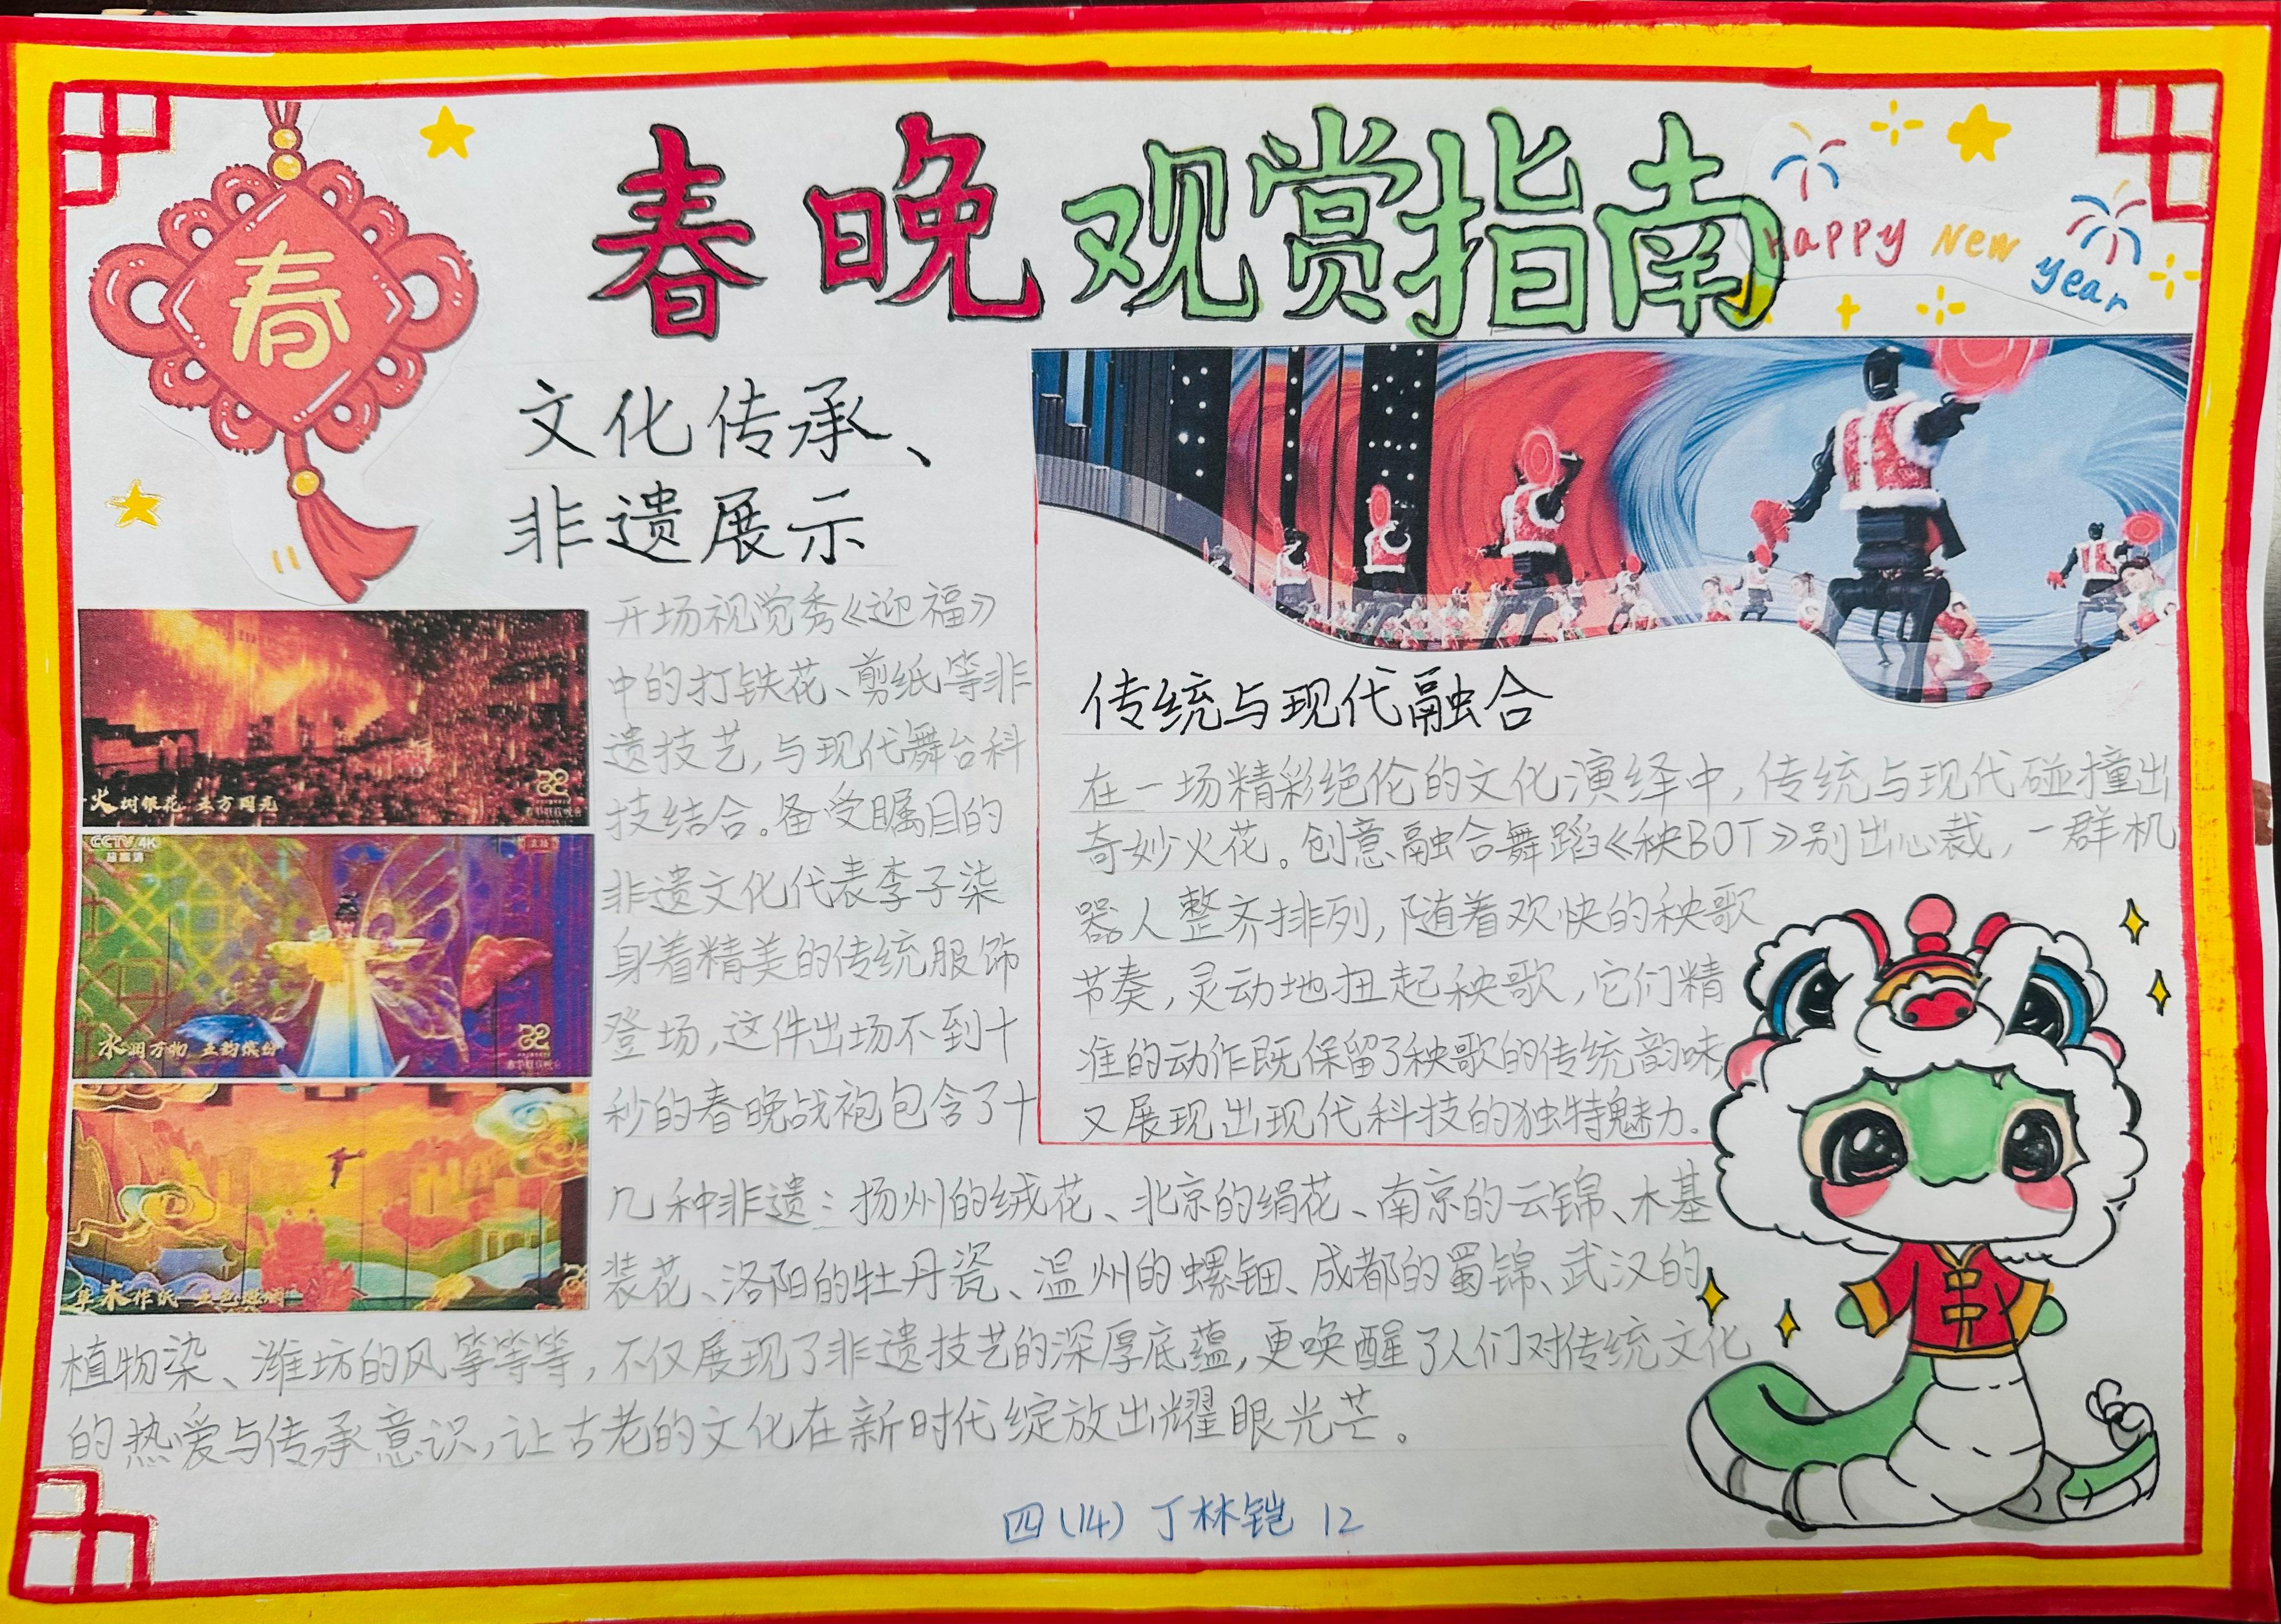 春
春晚观赏指南
Happy New
Year
文化传承、
非遗展示
开场视觉秀《迎福》
中的打铁花、剪纸等非
遗技艺,与现代舞台科
技结合。备受瞩目的
非遗文化代表李子柒
身着精美的传统服饰
登场,这件出场不到十
秒的春晚战袍包含了十
几种非遗:扬州的绒花、北京的绢花、南京的云锦、木基
装花、洛阳的牡丹瓷、温州的螺钿、成都的蜀锦、武汉的
植物染、潍坊的风筝等等,不仅展现了非遗技艺的深厚底蕴,更唤醒了人们对传统文化
的热爱与传承意识,让古老的文化在新时代绽放出耀眼光芒。
火树银花 五方同光
CCTV 4K
超高清
直播
水润万物 五韵缤纷
草木作纸
传统与现代融合
在一场精彩绝伦的文化演绎中,传统与现代碰撞出
奇妙火花。创意融合舞蹈《秧BOT》别出心裁,一群机
器人整齐排列,随着欢快的秧歌
节奏,灵动地扭起秧歌,它们精
准的动作既保留了秧歌的传统韵味,
又展现出现代科技的独特魅力.
四(14) 丁林铠 12